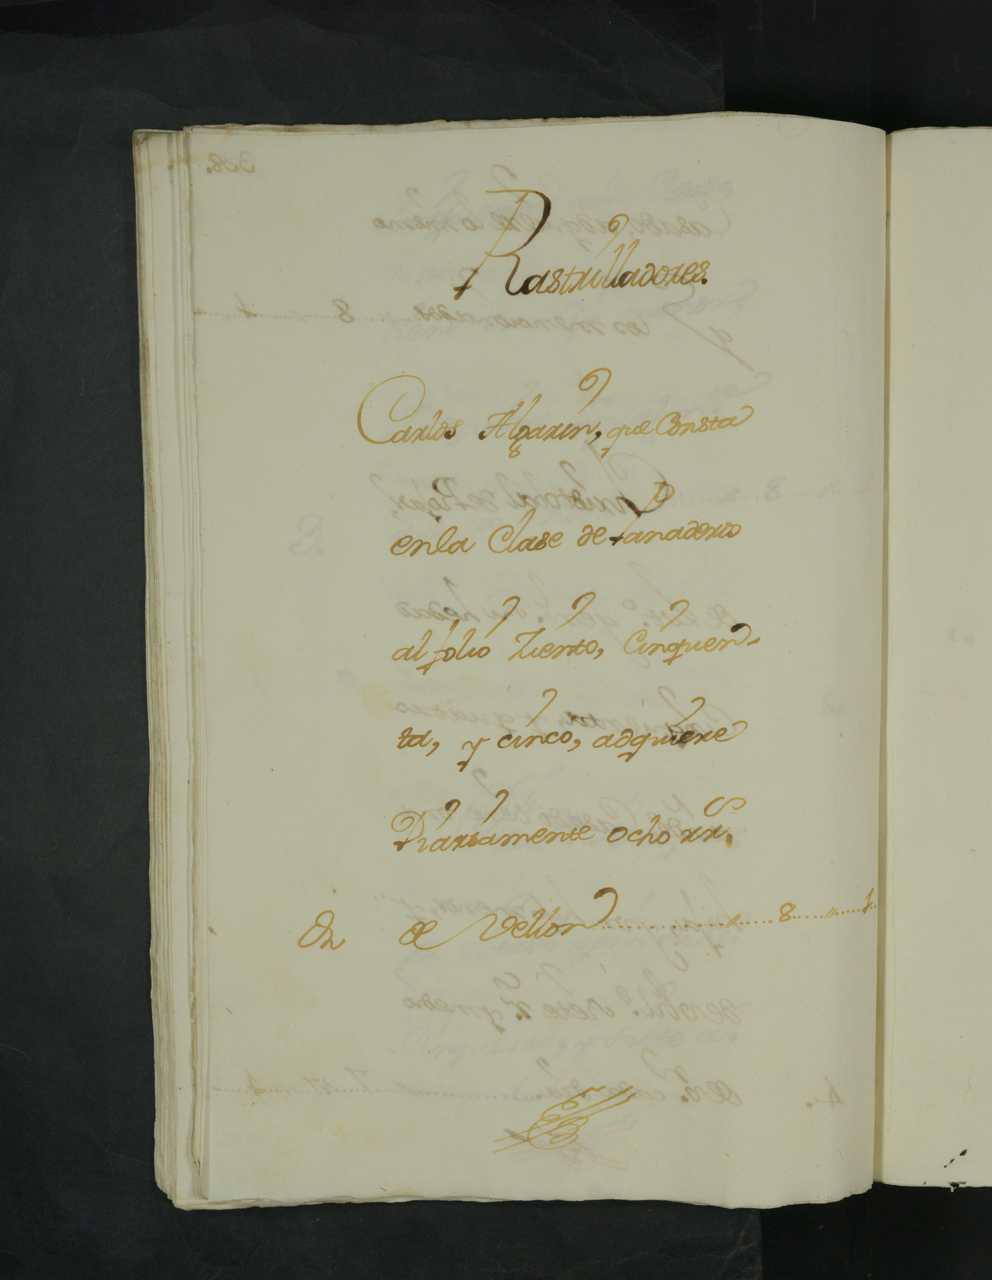 Rastrilladores.
Carlos Algarin, que Consta
en la Clase de Panaderos
al folio Ziento, Cinquen-
ta, y cinco, adquiere
Diariamente ocho rr.
de Vellon 8